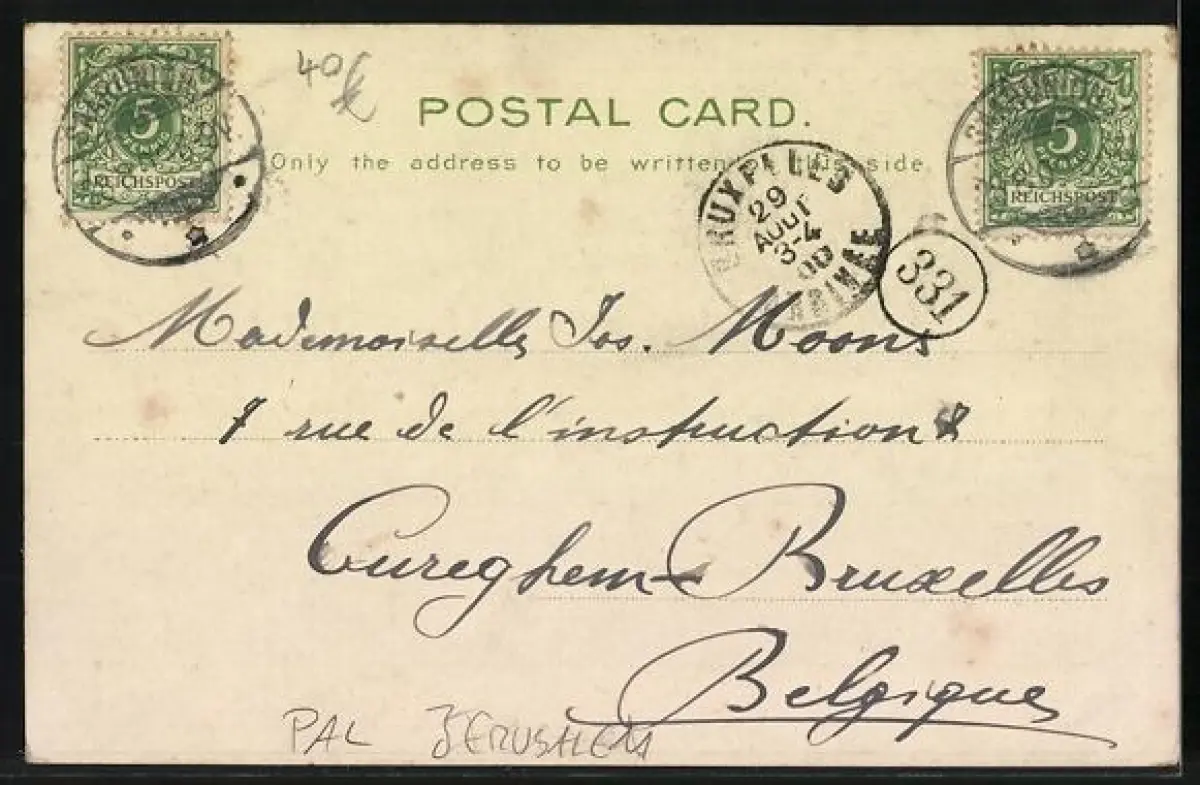 40
POSTAL CARD.
Only the address to be written on this side.
5
REICHSPOST
5
REICHSPOST
BRUXELLES
29
AOUT
3-4
00
331
Mademoiselle Jos. Moons
7 rue de l'instruction
Cureghem-Bruxelles
Belgique
PAL JERUSHLEM